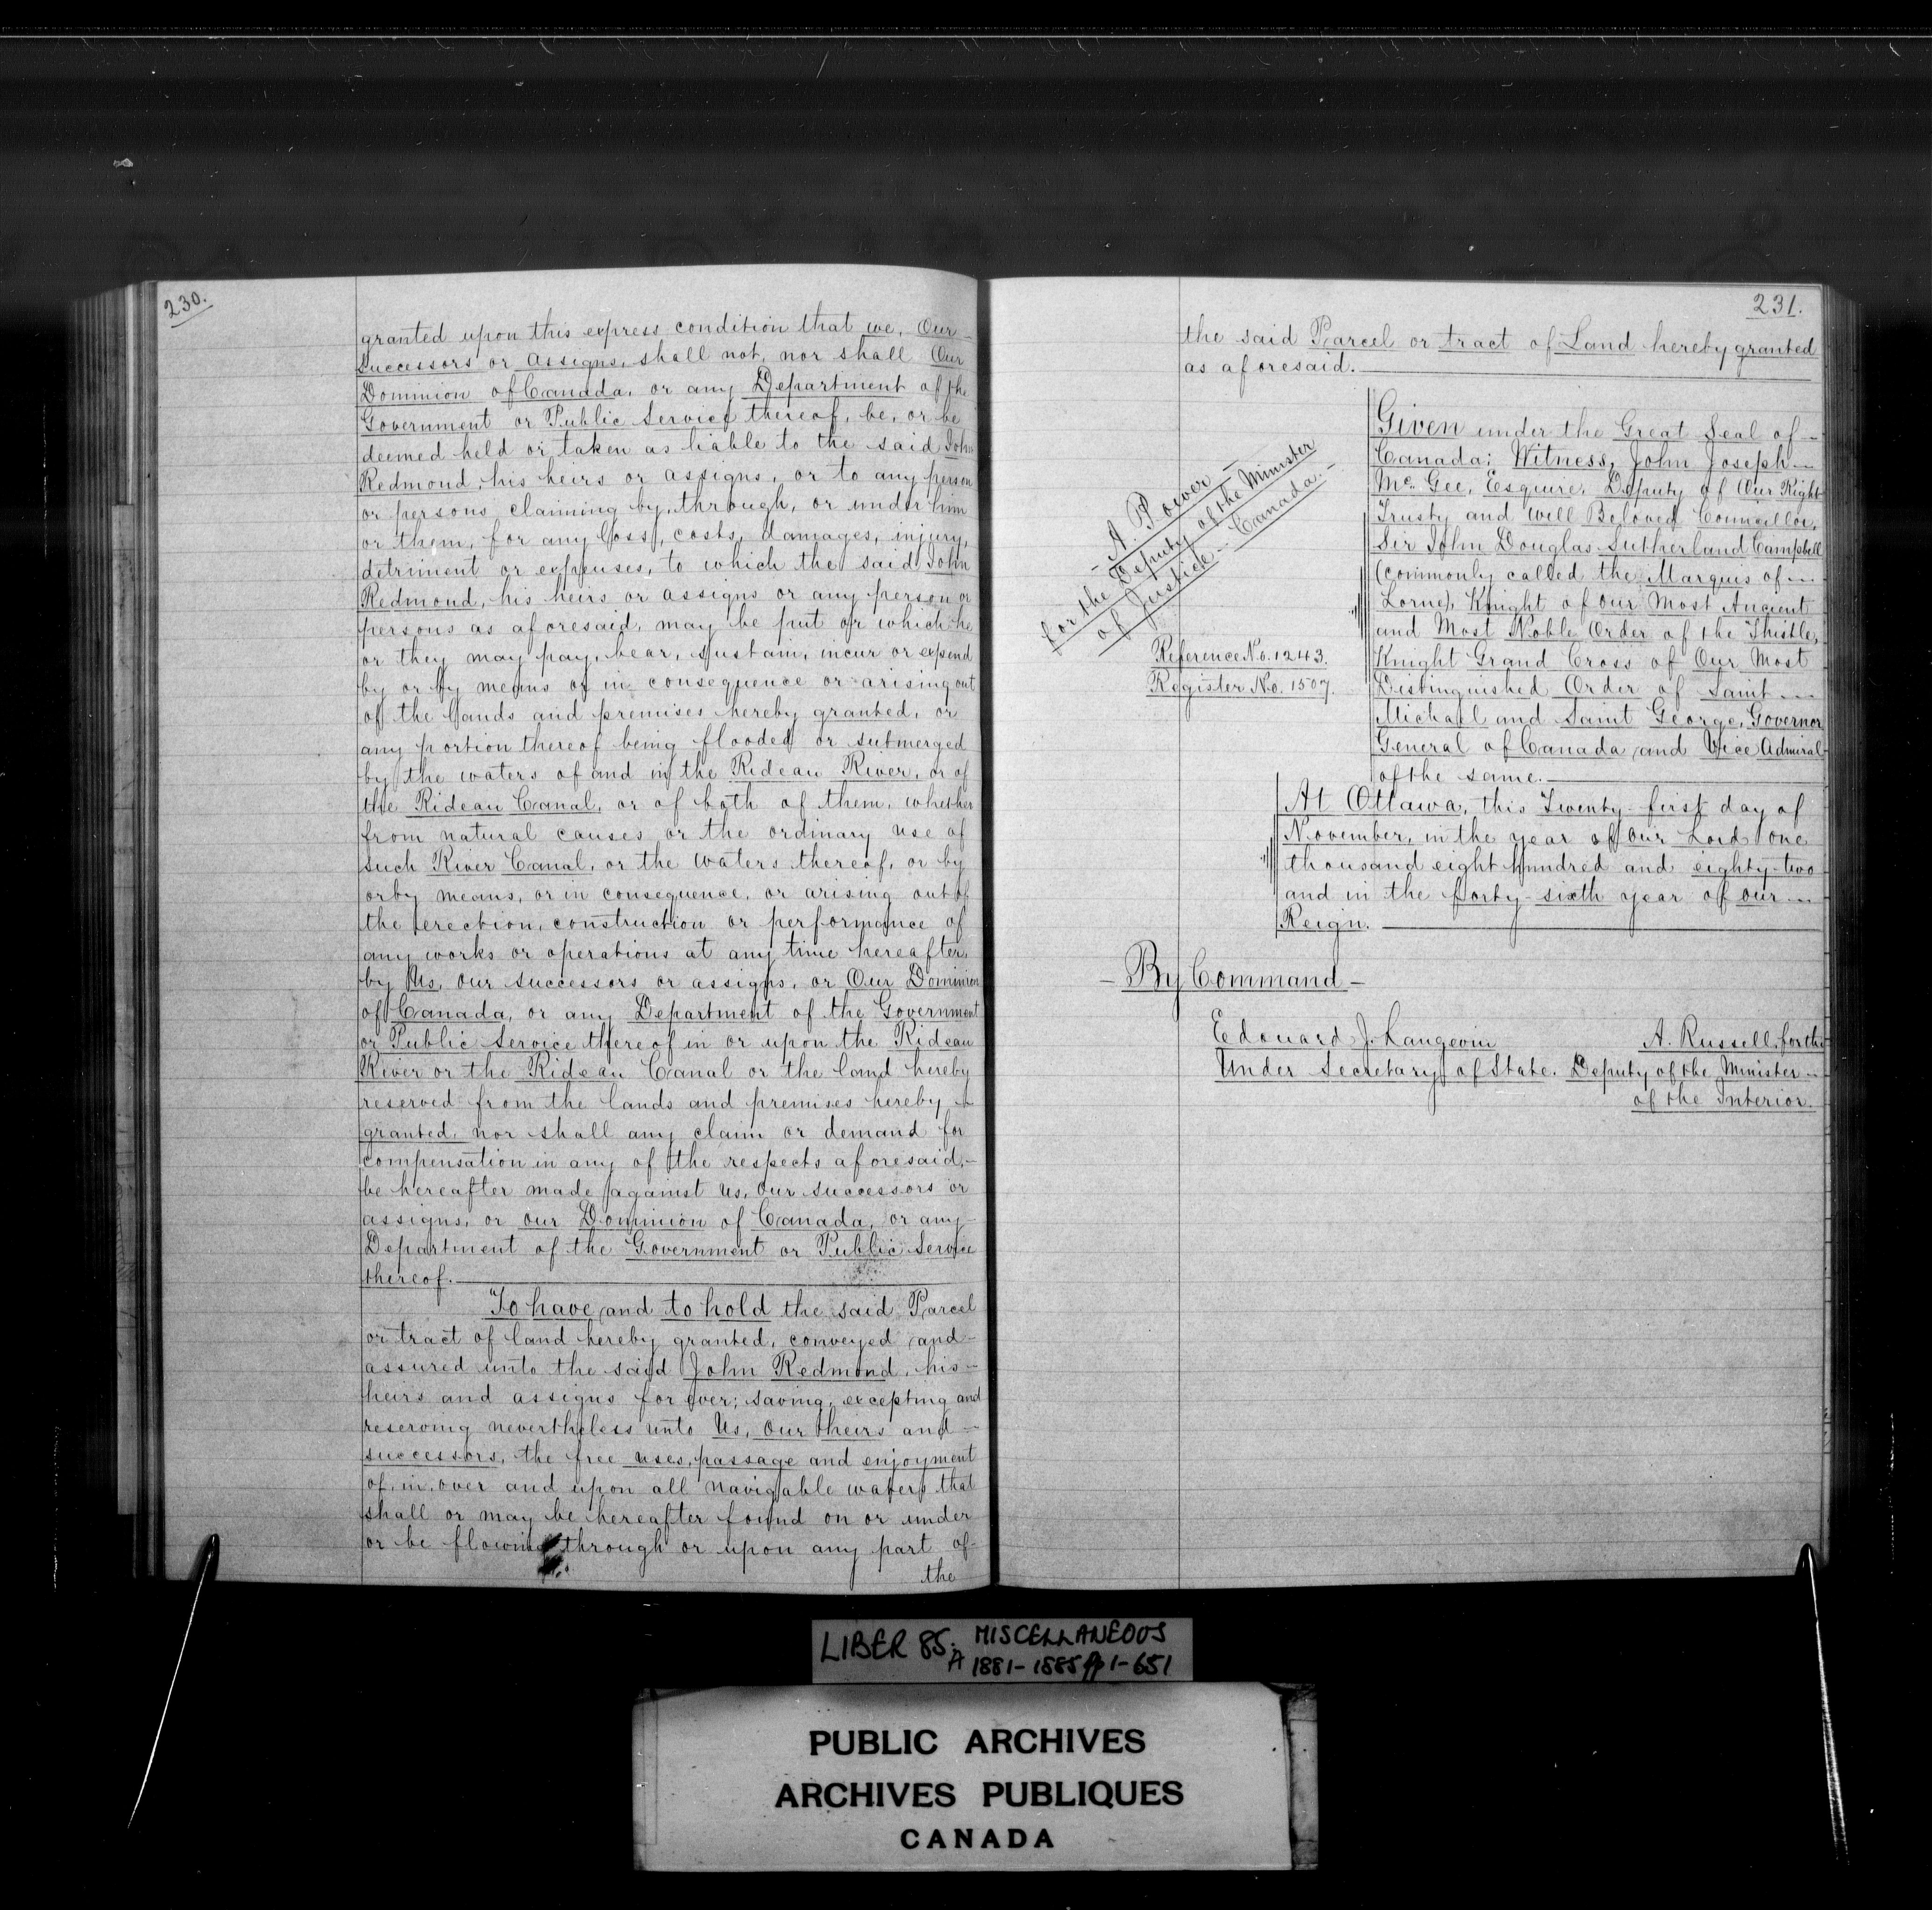 230.
granted upon this express condition that we, Our
Successors or Assigns, shall not, nor shall Our
Dominion of Canada, or any Department of the
Government or Public Service thereof, be, or be
deemed held or taken as liable to the said John
Redmond, his heirs or assigns, or to any person
or persons claiming by, through, or under him
or them, for any loss, costs, damages, injury,
detriment or expenses, to which the said John
Redmond, his heirs or assigns or any person or
persons as aforesaid, may be put or which he
or they may pay, bear, sustain, incur or expend
by or by means or in consequence or arising out
of the lands and premises hereby granted, or
any portion thereof being flooded or submerged
by the waters of and in the Rideau River, or of
the Rideau Canal, or of both of them, whether
from natural causes or the ordinary use of
such River Canal, or the waters thereof, or by
or by means, or in consequence, or arising out of
the erection, construction or performance of
any works or operations at any time hereafter,
by Us, our successors or assigns, or Our Dominion
of Canada, or any Department of the Government
or Public Service thereof in or upon the Rideau
River or the Rideau Canal or the land hereby
reserved from the lands and premises hereby
granted, nor shall any claim or demand for
compensation in any of the respects aforesaid,
be hereafter made against us, our successors or
assigns, or our Dominion of Canada, or any
Department of the Government or Public Service
thereof.
To have and to hold the said Parcel
or tract of land hereby granted, conveyed and
assured unto the said John Redmond, his
heirs and assigns for ever; saving, excepting and
reserving nevertheless unto Us, Our heirs and
successors, the free uses, passage and enjoyment
of, in, over and upon all navigable waters that
shall or may be hereafter found on or under
or be flowing through or upon any part of
the
231.
the said Parcel or tract of Land hereby granted
as aforesaid.
- A. Power -
for the Deputy of the Minister
of Justice - Canada. -
Reference No. 1243.
Register No. 1507.
Given under the Great Seal of
Canada: Witness, John Joseph
Mc Gee, Esquire, Deputy of Our Right
Trusty and Well Beloved Councillor,
Sir John Douglas Sutherland Campbell
(commonly called the Marquis of
Lorne), Knight of Our Most Ancient
and Most Noble Order of the Thistle,
Knight Grand Cross of Our Most
Distinguished Order of Saint
Michael and Saint George, Governor
General of Canada and Vice Admiral
of the same.
At Ottawa, this Twenty-first day of
November, in the year of Our Lord one
thousand eight hundred and eighty-two
and in the forty-sixth year of our
Reign.
- By Command -
Edouard J. Langevin
Under Secretary of State.
A. Russell, for the
Deputy of the Minister
of the Interior.
LIBER 85. MISCELLANEOUS
A 1881-1885 pp 1-651
PUBLIC ARCHIVES
ARCHIVES PUBLIQUES
CANADA